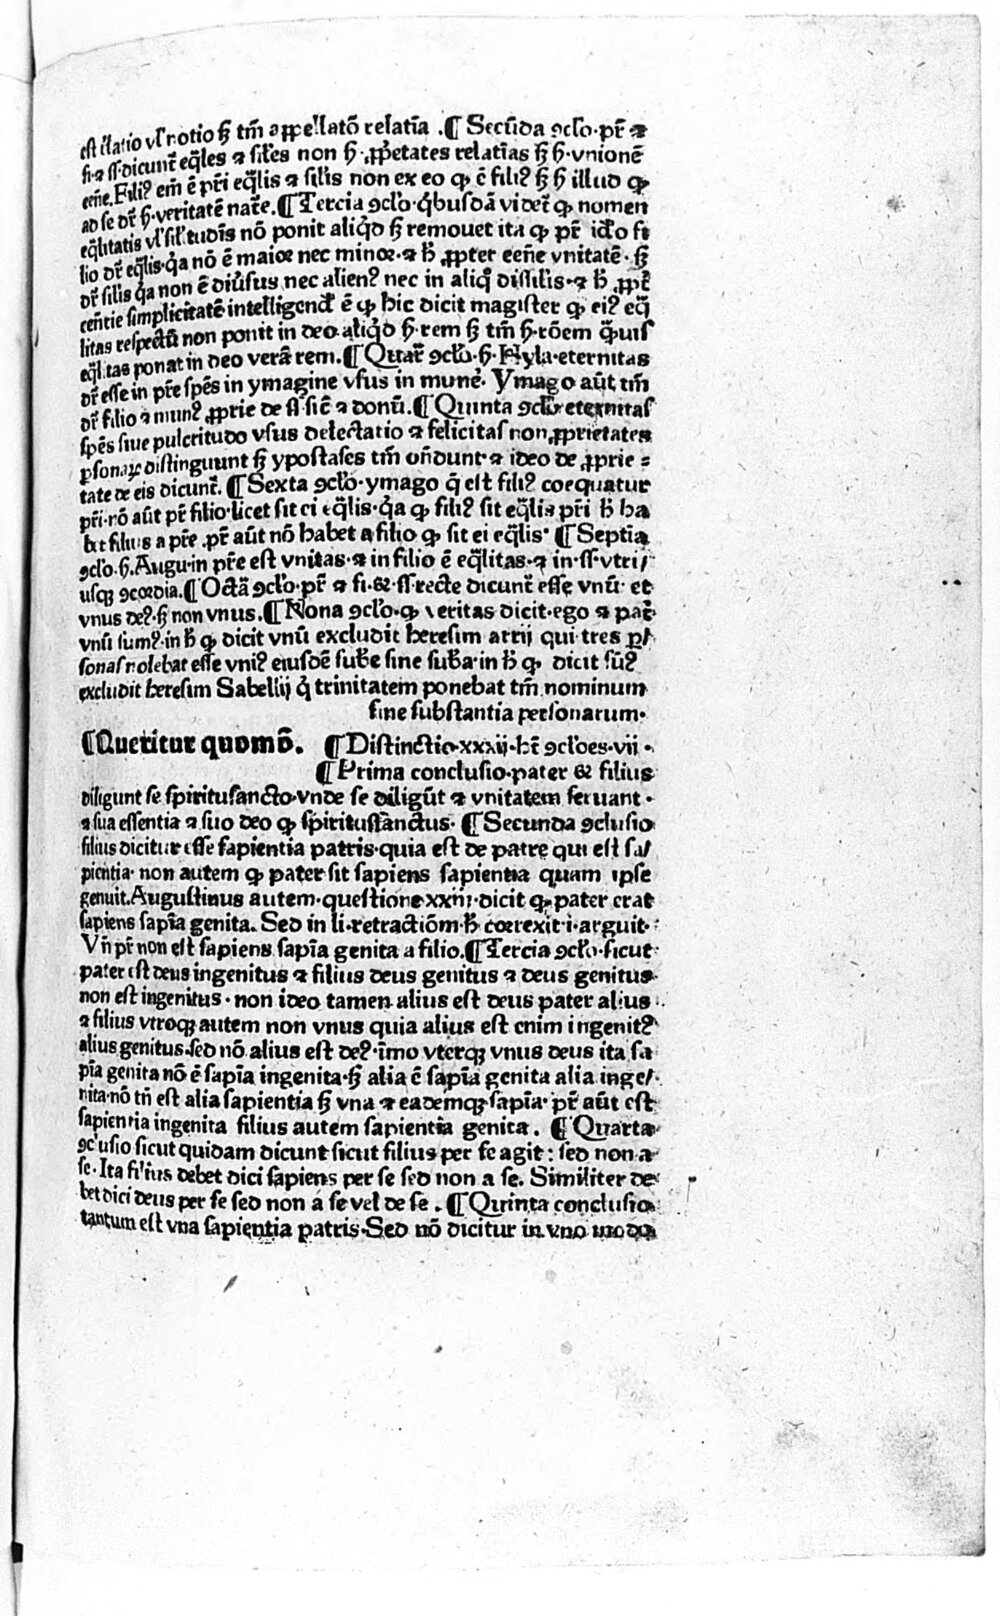 est illatio vl' notio ꝫ tm̄ appellatō relatīa .¶ Secūda ꝯclo·pr̄ ⁊
fi·⁊ ss̄·dicunt̄ eq̄les ⁊ siles non ꝓpetates relatīas vnionē
eēne.Filiꝰ em̄ ē pr̄i eq̄lis ⁊ silis non ex eo ꝙ ē filiꝰ illud ꝙ
ad se dr̄ veritatē nat̄e.¶Tercia ꝯclo·q̄busdā videt̄ ꝙ nomen
eq̄litatis vl' sil'tudīs nō ponit aliq̄d ꝫ remouet ita ꝙ pr̄ ido fi
lio dr̄ eq̄lis·q̄a nō ē maior nec minor·⁊ ꝓpter eēne vnitatē·ꝫ
dr̄ silis q̄a non ē diūsus nec alienꝰ nec in aliq̄ dissilis·⁊
cēntie simplicitatē intelligend' ē ꝙ hic dicit magister ꝙ eiꝰ eq̄
litas respectū non ponit in deo aliq̄d rem ꝫ tm̄ rōem q̄uis
eq̄litas ponat in deo verā rem.¶Quar̄ ꝯclo·Hyla·eternitas
dr̄ esse in pr̄e spēs in ymagine vsus in munē· Ymago aūt tm̄
dr̄ filio ⁊ munꝰ ꝓprie de ss̄·sic̄ ⁊ donū.¶Quinta ꝯclo·eternitas
spēs siue pulcritudo vsus delectatio ⁊ felicitas non ꝓprietates
ꝑsonaꝝ distinguunt ꝫ ypostases tm̄ on̄dunt·⁊ ideo de ꝓprie =
tate de eis dicunt̄.¶Sexta ꝯclo·ymago q̄ est filiꝰ coequatur
pr̄i·nō aūt pr̄ filio·licet sit ei eq̄lis·q̄a ꝙ filiꝰ sit eq̄lis pr̄i ha
bet filius a pr̄e .pr̄ aūt nō habet a filio ꝙ sit ei eq̄lis·¶Septīa
ꝯclo·Augu·in pr̄e est vnitas·⁊ in filio ē eq̄litas·⁊ in·ss·vtri/
usꝗ ꝯcordia.¶Octā ꝯclo·pr̄ ⁊ fi·& ss·recte dicunt̄ esse vnū· et
vnus deꝰ·ꝫ non vnus.¶Nona ꝯclo·ꝙ veritas dicit·ego ⁊ pat̄·
vnū sumꝰ·in ꝙ dicit vnū excludit heresim arrij qui·tres ꝑ/
sonas nolebat esse vniꝰ eiusdē sub̄e sine sub̄a·in ꝙ dicit sūꝰ
excludit heresim Sabellij q̄ trinitatem ponebat tm̄ nominum
sine substantia personarum·
¶Queritur quomō. ¶Distinctio·xxxij·ht̄ ꝯcloes·vij·
¶Prima conclusio·pater & filius
diligunt se spiritusancto·vnde se diligūt ⁊ vnitatem seruant·
⁊ sua essentia ⁊ suo deo ꝙ spiritussanctus·¶Secunda ꝯclusio
filius dicitur esse sapientia patris·quia est de patre qui est sa/
pientia· non autem ꝙ pater sit sapiens sapientia quam ipse
genuit.Augustinus autem·questione xxiij·dicit ꝙ pater erat
sapiens sapīa genita. Sed in li·retractiōm· correxit·i·arguit·
Vn̄ pr̄ non est sapiens sapīa genita a filio.¶Tercia ꝯclo·sicut
pater est deus ingenitus ⁊ filius deus genitus ⁊ deus genitus
non est ingenitus·non ideo tamen alius est deus pater alius
⁊ filius vtroqꝫ autem non vnus quia alius est enim ingenitꝰ
alius genitus·sed nō alius est deꝰ·īmo vterqꝫ vnus deus ita sa
pīa genita nō ē sapīa ingenita·ꝫ alia ē sapīa genita alia inge/
nita·nō tn̄ est alia sapientia ꝫ vna ⁊ eademqꝫ sapīa· pr̄ aūt est
sapientia ingenita filius autem sapientia genita. ¶Quarta
ꝯclusio sicut quidam dicunt sicut filius per se agit : sed non a
se·Ita filius debet dici sapiens per se sed non a se. Similiter de
bet dici deus per se sed non a se vel de se .¶Quinta conclusio
tantum est vna sapientia patris·Sed nō dicitur in vno modo